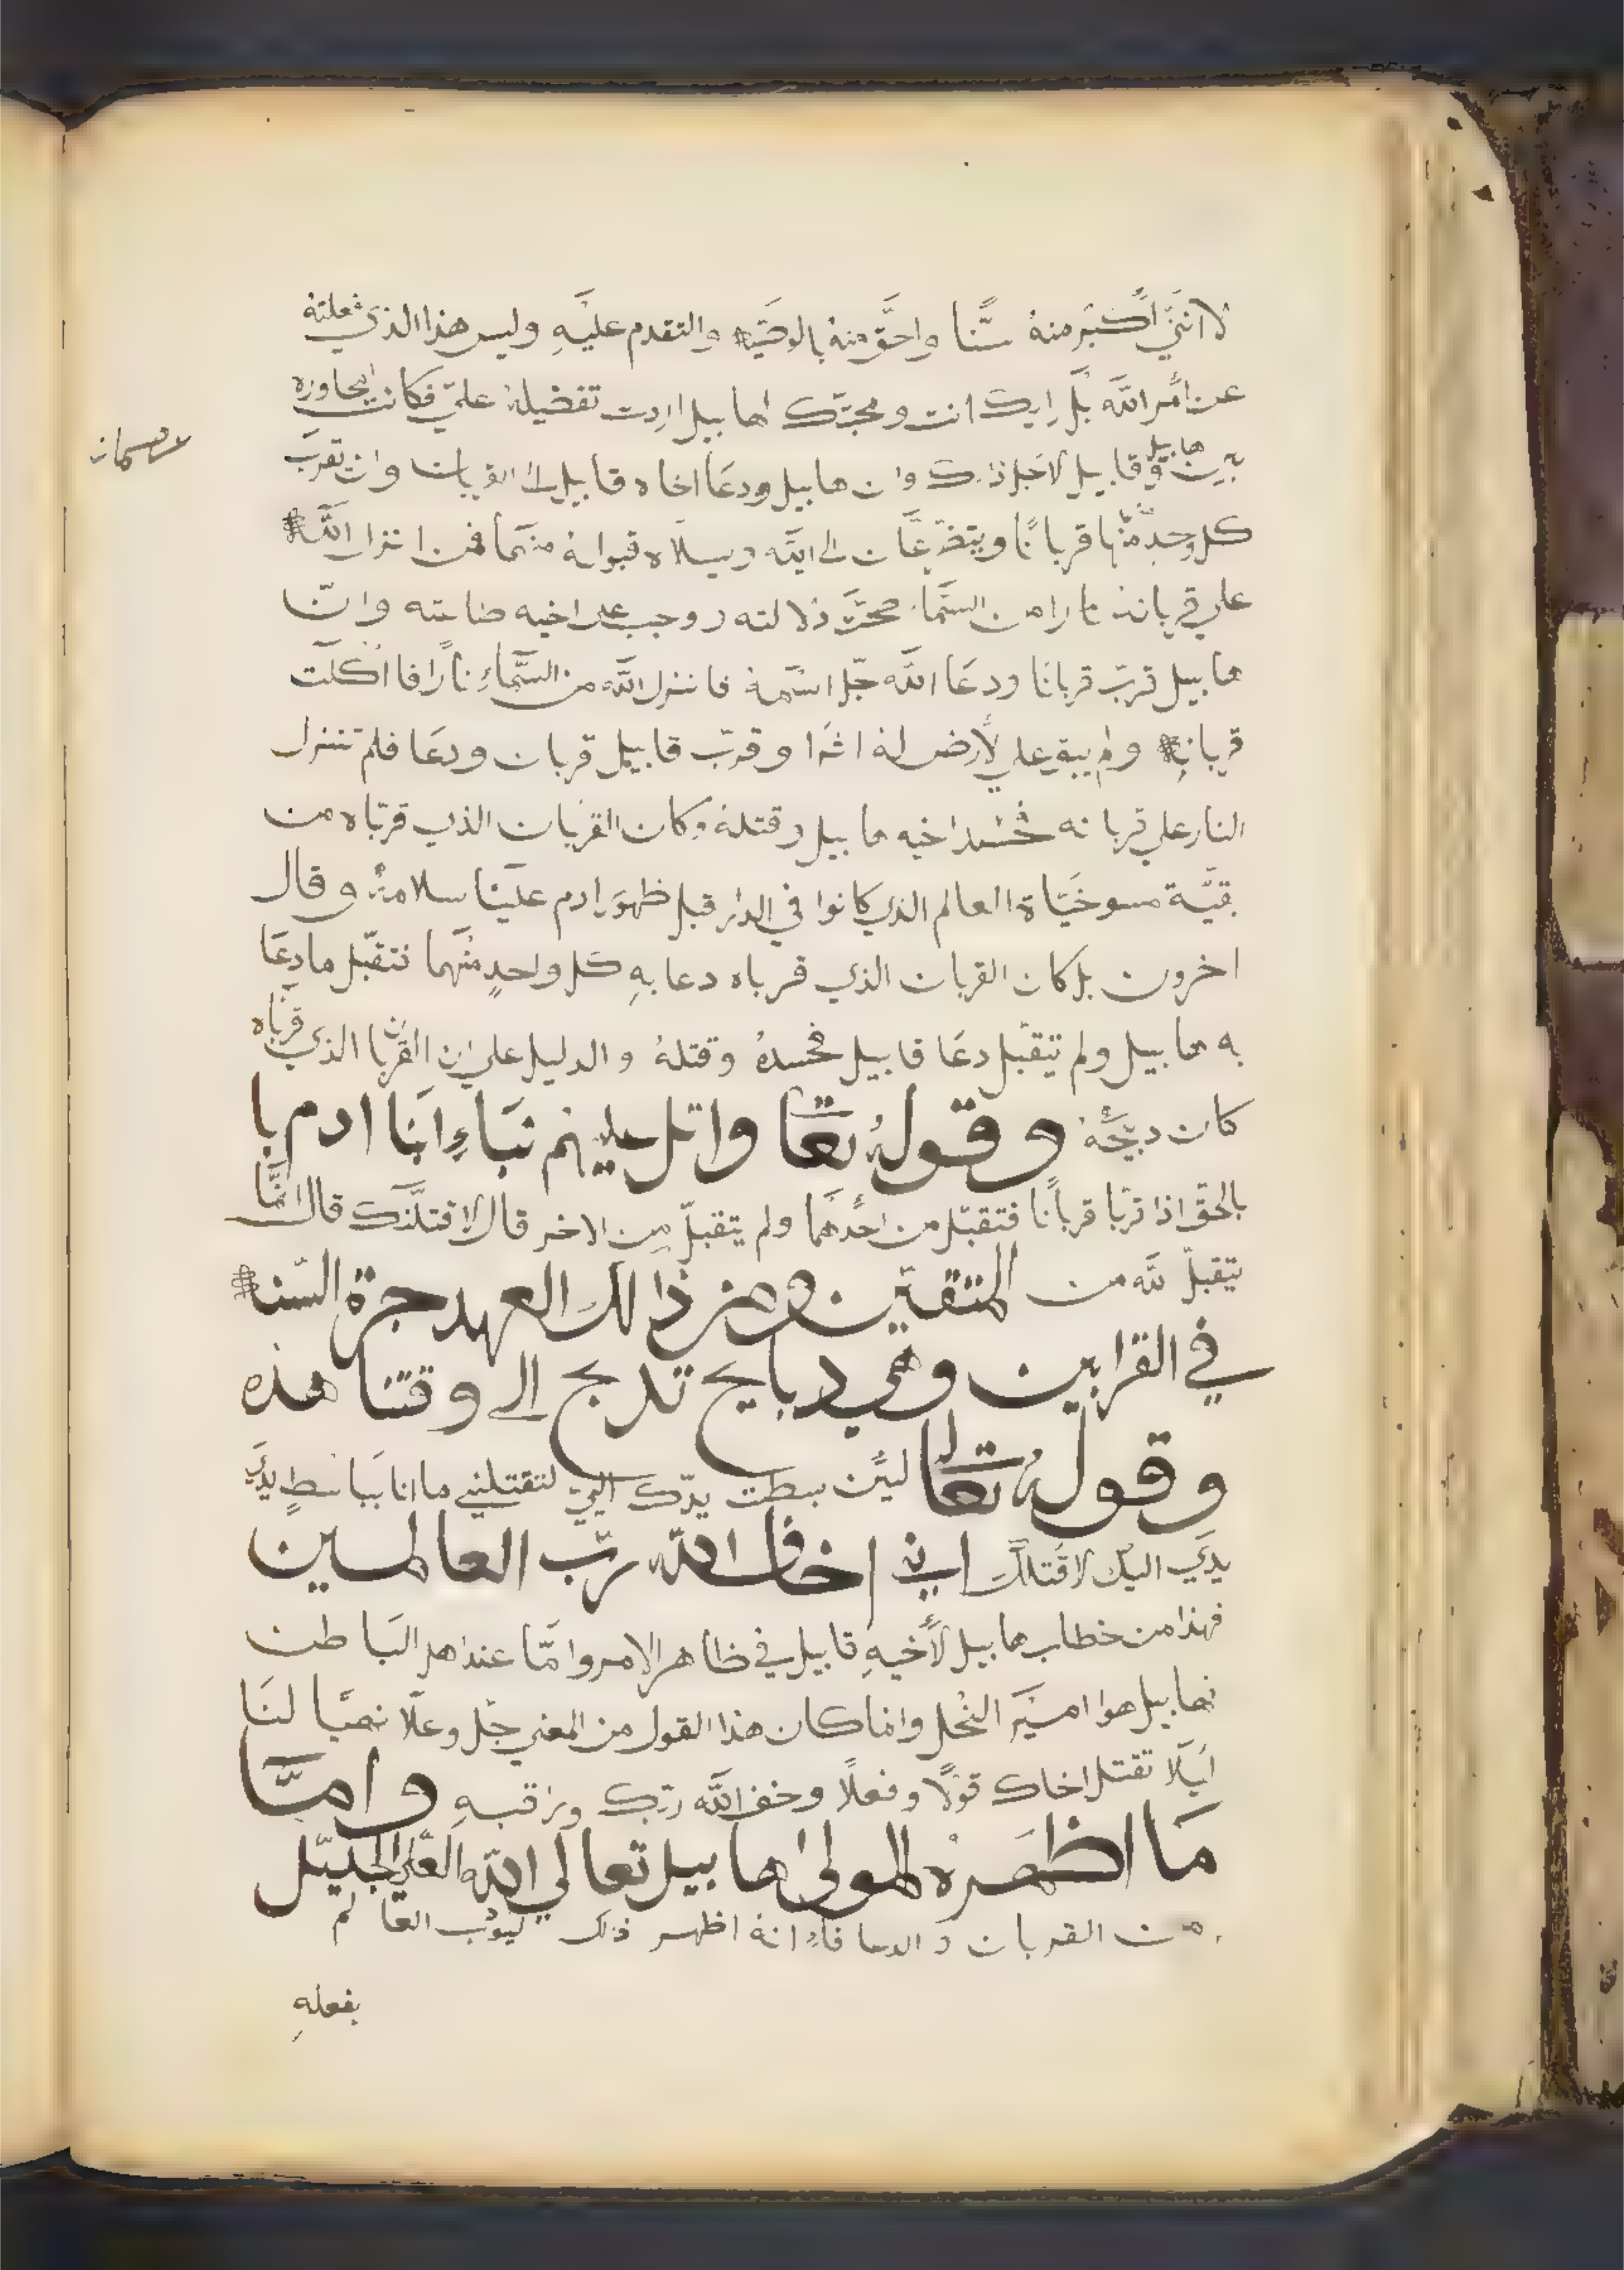 لانني أكبر منه سنّا واحقّ منه بالوصيّه والتقدم عليهِ وليس هذا الذي فعلته
عن أمر اللّه بل رايك انت ومحبّتك اهابيل اردت تفضيله عليّ فكانت المحاوره
بين هابيل وقابيل لاجل ذلك وان هابيل ودعَا اخاه قابيل الى القربان وان تقرب
كل وحدٍ منهما قربانًا ويتضرّعَان الى اللّه ويسلاه قبوله منهما فمن انزل اللّه
على قربانه نارا من السّماء صحّت دلالته ووجب على اخيه طاعته وانّ
هابيل قربّ قربانَا ودعَا اللّه جّل اسّمه فانزل اللّه من السّماءِ نارًا فا اكلت
قربانهِ ولم يبق علي لأرض له اثرا وقربّ قابيل قربان ودعَا فلم تنزل
النار علي قربانه فحسد اخيه هابيل وقتلهُ وكان القربان الذي قربّاه من
بقيّة مسوخيّاة العالم الذي كانوا في الدار قبل ظهور ادم علينا سلامهُ وقال
اخرون بل كان القربان الذي قرباه دعا بهِ كل واحدٍ منهما فتقبّل ما دعَا
به هابيل ولم يتقبّل دعَا قابيل فحسدهُ وقتلهُ والدليل علي ان القربان الذي قربّاه
كان دبيحَه وقولهُ تعَا واتل عليهم نبَاءِ ابنَا ادم با
بالحق اذا قربّا قربانًا فتقبّل من احَدهمَا ولم يتقبلّ من الاخر قال لاقتلنّك قال انّمَا
يتقبلّ للّه من المتقيّن ومن ذالك العهد جرة السّنه
في القرابين وهي دبايح تدبح الى وقتنا هذه
وقولهُ تعَالى ليّن بسطت يدّك اليّ لتقتلني ما انا بَباسطٍ يديَ
يديَ اليك لاقتلك اني اخاف اللّه ربّ العالمين
فهذا من خطاب هابيل لأخيهِ قابيل في ظاهر الامر وامّا عند اهل البَاطن
فهابيل هوا اميَر النحَل وانما كان هذا القول من المعني جّل وعلّا نهيًا لنَا
ايَلا تقتل اخاك قولًا وفعلًا وخف اللّه ربّك وراقبهِ وامّا
مَا اظهَرهُ المولى هابيل تعالي اللّه العّلي الجليّل
من القربان والدعا فاءِ انهُ اظهر ذلك ليوب العَالم
بفعلهِ